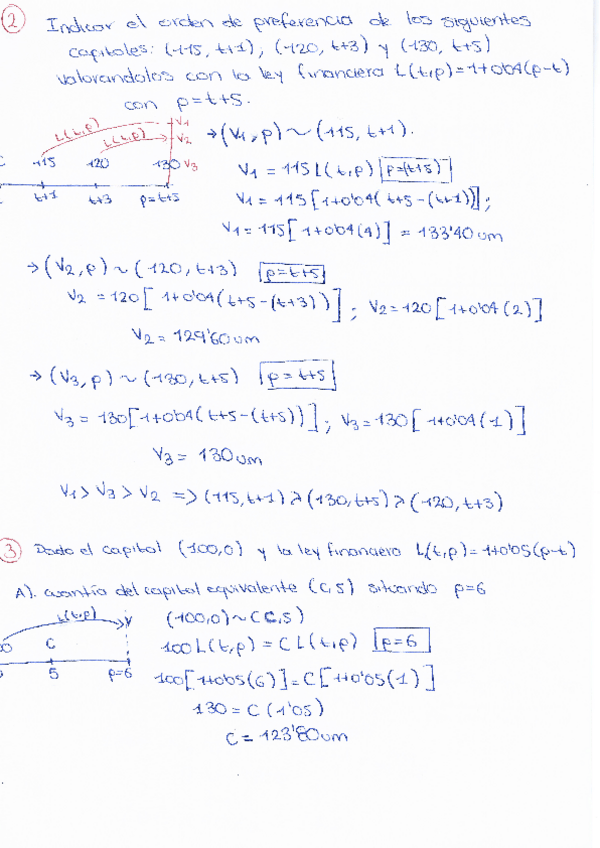 2 Indicar el orden de preferencia de los siguientes
capitales: (115, t+1); (120, t+3) y (130, t+5)
valorandolos con la ley financiera L(t,p)=1+0'04(p-t)
con p=t+5.
L(t,p) V1
L(t,p) V2
115 120 130 V3
t+1 t+3 p=t+5
→(V1,p) ~ (115, t+1).
V1 = 115 L(t,p) p=(t+5)
V1 = 115[1+0'04(t+5-(t+1))];
V1 = 115[1+0'04(4)] = 133'40 um
→(V2,p) ~ (120, t+3) p=t+5
V2 = 120[1+0'04(t+5-(t+3))]; V2=120[1+0'04(2)]
V2 = 129'60um
→(V3,p) ~ (130, t+5) p=t+5
V3 = 130[1+0'04(t+5-(t+5))]; V3=130[1+0'04(1)]
V3 = 130um
V1 > V3 > V2 => (115,t+1) ≻ (130,t+5) ≻ (120,t+3)
3 Dado el capital (100,0) y la ley financiera L(t,p)=1+0'05(p-t)
A). cuantía del capital equivalente (C,5) situando p=6
L(t,p) V
C
5 p=6
(100,0)~(C,5)
100L(t,p) = CL(t,p) p=6
100[1+0'05(6)]=C[1+0'05(1)]
130 = C(1'05)
C = 123'80um